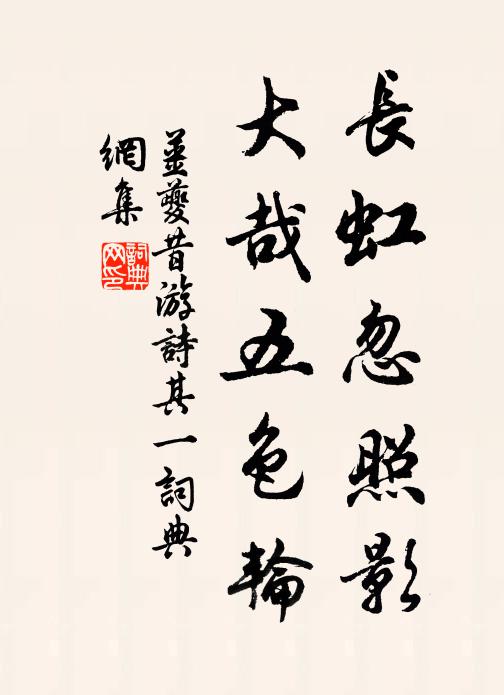 長虹忽照影
大哉五色輪
姜夔昔游詩其一詞典
網集
詞典網印